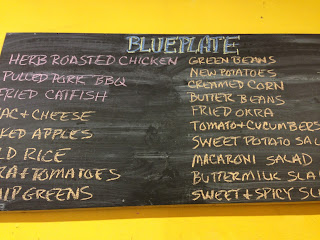 BLUEPLATE
HERB ROASTED CHICKEN
PULLED PORK BBQ
FRIED CATFISH
AC + CHEESE
KED APPLES
LD RICE
RA + TOMATOES
NIP GREENS
GREEN BEANS
NEW POTATOES
CREAMED CORN
BUTTER BEANS
FRIED OKRA
TOMATO + CUCUMBERS
SWEET POTATO SAL
MACARONI SALAD
BUTTERMILK SLA
SWEET + SPICY SL